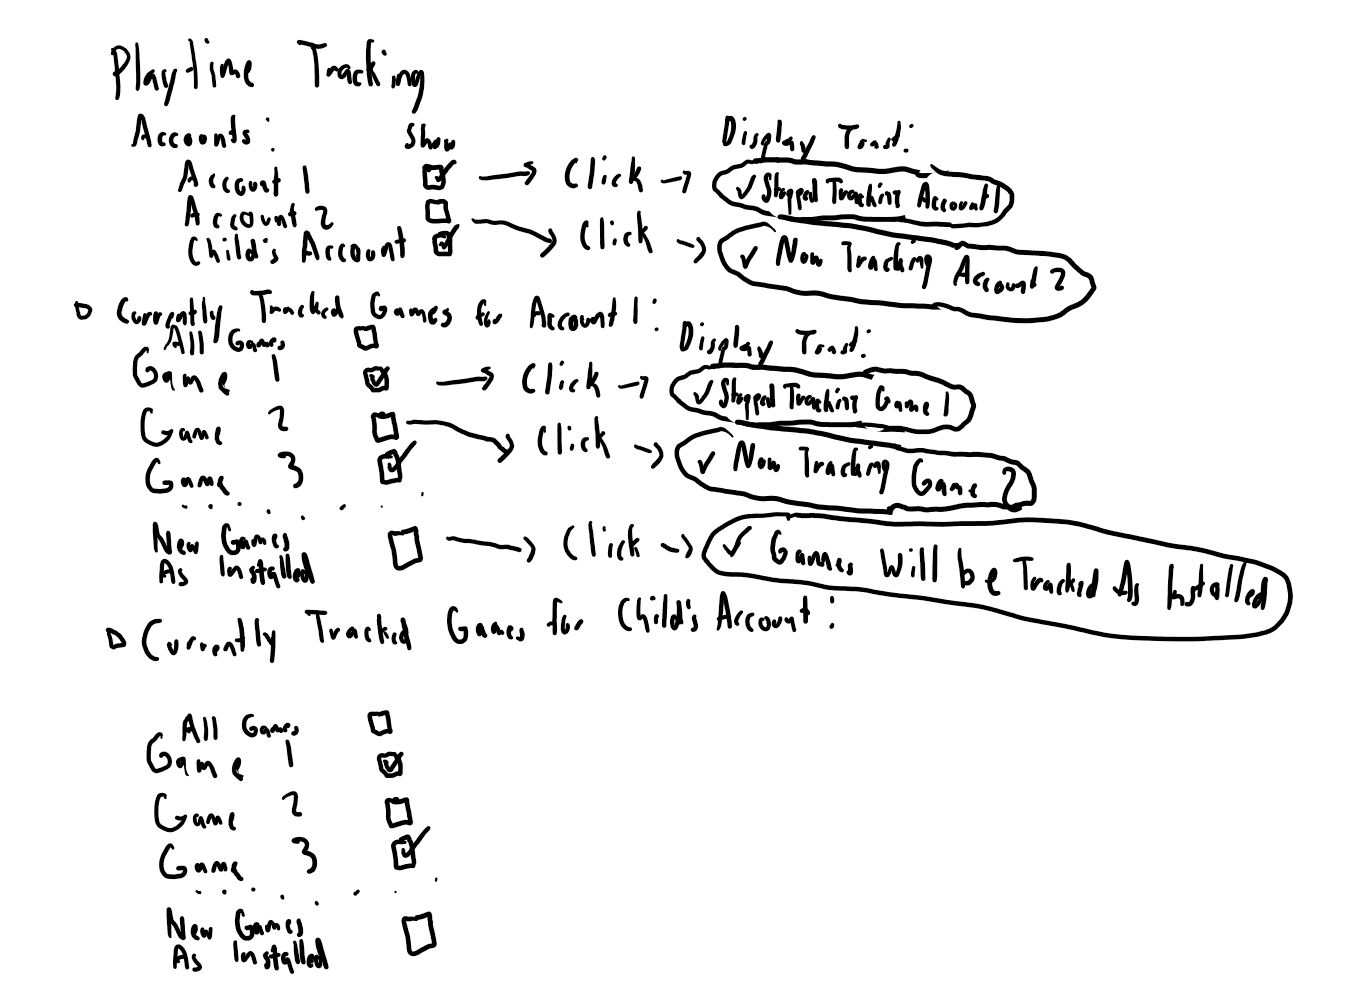 Playtime Tracking
Accounts: Show Display Toast:
Account 1 Click ✓ Stopped Tracking Account 1
Account 2 Click ✓ Now Tracking Account 2
Child's Account
Currently Tracked Games for Account 1:
All Games Display Toast:
Game 1 Click ✓ Stopped Tracking Game 1
Game 2 Click ✓ Now Tracking Game 2
Game 3
New Games
As Installed Click ✓ Games Will be Tracked As Installed
Currently Tracked Games for Child's Account:
All Games
Game 1
Game 2
Game 3
New Games
As Installed